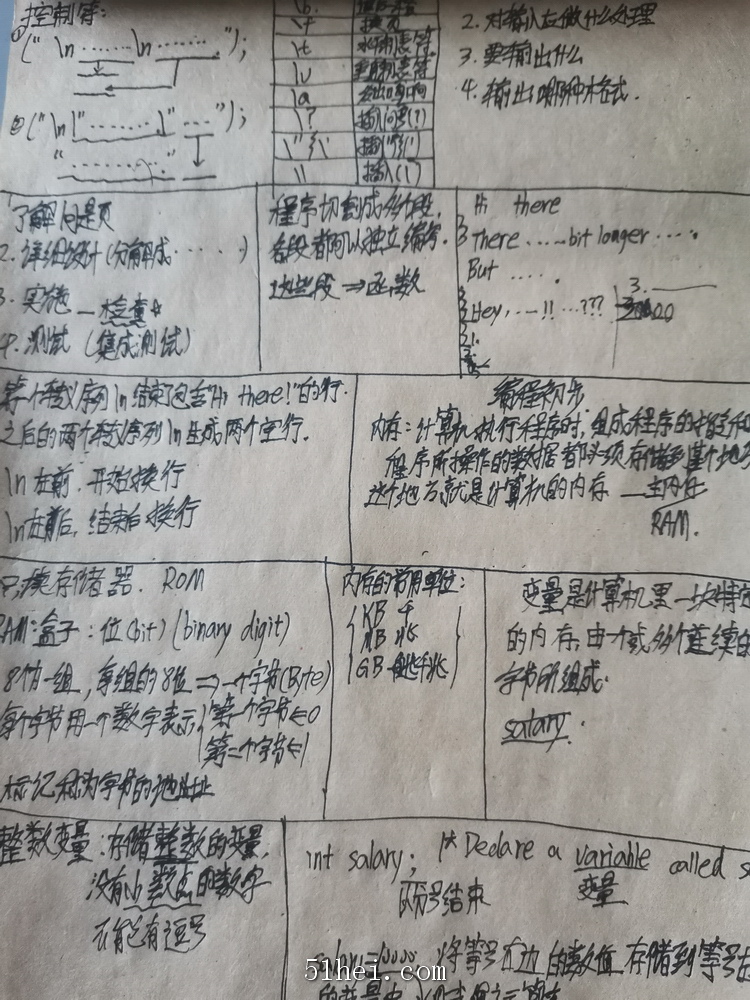 控制符:
① ("\n ……\n ……");
② ("\n\"……\" …");
"……………"
\b 退格
\f 换页
\t 水平制表符
\v 垂直制表符
\a 发出鸣响
\? 插入问号(?)
\"
\\ 插入(\)
2. 对输入应做什么处理
3. 要输出什么
4. 输出哪种格式.
了解问题
2. 详细设计(分解成……)
3. 实施 — 检查
4. 测试 (集成测试)
程序切割成多个段,
各段都可以独立编写.
这些段 ⇒ 函数
Hi there
There ……bit longer …..
But …..
Hey, …!! …???
第一个转义序列\n结束包含"Hi there!"的行.
之后的两个转义序列\n生成两个空行.
\n在前. 开始换行
\n在后, 结束后换行
编程初步
内存: 计算机执行程序时, 组成程序的指令和
程序所操作的数据都必须存储到某个地方
这个地方就是计算机的内存 — 主内存
RAM.
只读存储器. ROM
RAM: 盒子: 位(bit) (binary digit)
8个为一组, 每组的8位 ⇒ 一个字节(Byte)
每个字节用一个数字表示, 第一个字节∈0
第二个字节∈1
标记称为字节的地址
内存的常用单位:
KB 千
MB 兆
GB 千兆
变量是计算机里一块特定
的内存, 由一个或多个连续的
字节所组成.
salary.
整数变量: 存储整数的变量,
没有小数点的数字
不能包有逗号
int salary; /* Declare a variable called s
以分号结束 变量
salary=10000 将等号右边的数值存储到等号左
51hei.com